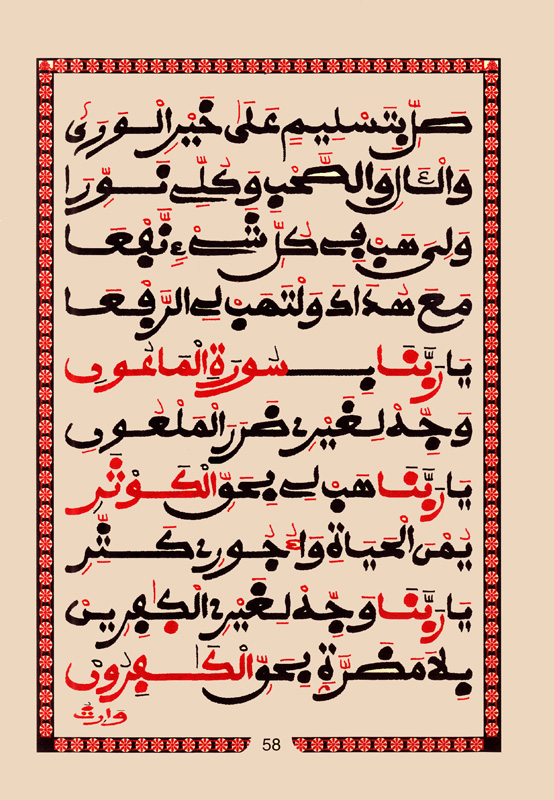 صَلِّ بِتَسْلِيمٍ عَلَى خَيْرِ الْوَرَى
وَالْـَٔالِ وَالصَّحْبِ وَكُلِّى نَوِّرَا
وَلِى هَبْ فِى كُلِّ شَىْءٍ نَّفْعَا
مَعَ هُدَاكَ وَلْتَهَبْ لِى الرَّفْعَا
يَا رَبَّنَا بِسُورَةِ الْمَاعُونِ
وَجِّهْ لِغَيْرِى ضَرَرَ الْمَلْعُونِ
يَا رَبَّنَا هَبْ لِى بِحَقِّ الْكَوْثَرِ
يُمْنَ الْحَيَاةِ وَأُجُورِى كَثِّرِ
يَا رَبَّنَا وَجِّهْ لِغَيْرِى الْكَٰفِرِينْ
بِلَا مَضَرَّةٍ بِحَقِّ الْكَٰفِرُونْ
58